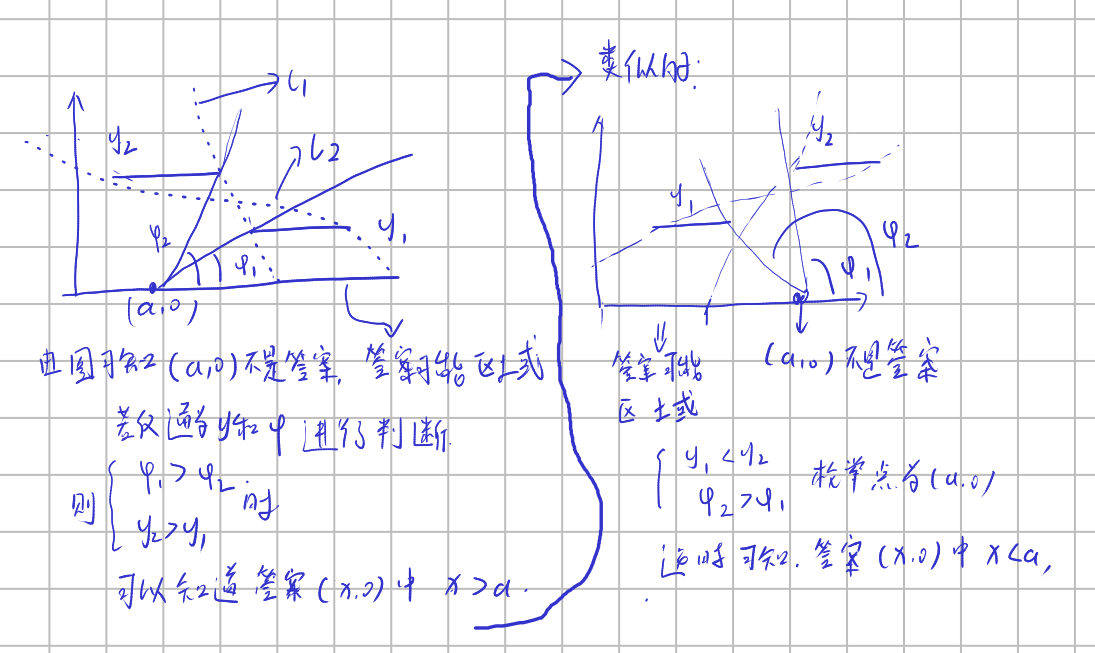 l₁
y₂
l₂
y₁
φ₂
φ₁
(a,0)
由图可知 (a,0)不是答案, 答案可能区域
若仅通过y和φ进行判断
则 { φ₁>φ₂ 时
y₂>y₁
可以知道答案(x,0)中 x>a.
类似的:
y₂
y₁
φ₂
φ₁
答案可能
区域
(a,0)不是答案
{ y₁<y₂
φ₂>φ₁ 枚举点为(a,0)
这时可知, 答案(x,0)中x<a,